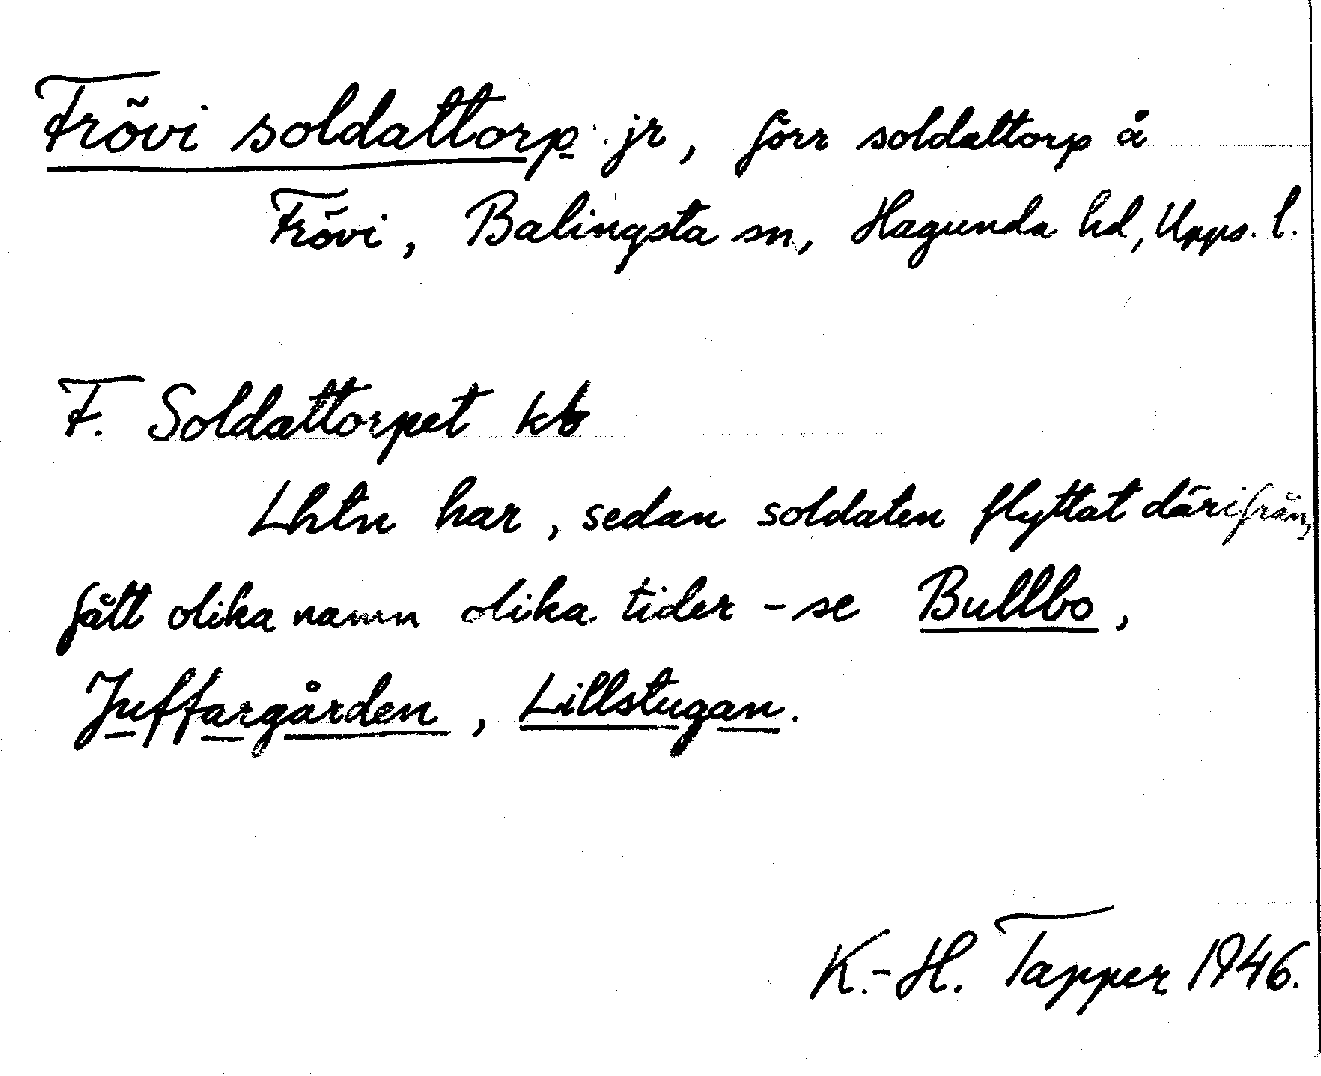 Frövi soldattorp jr, förr soldattorp å
Frövi, Balingsta sn, Hagunda hd, Upps. l.
F. Soldattorpet kb
Lhtn har, sedan soldaten flyttat därifrån,
fått olika namn olika tider - se Bullbo,
Juffargården, Lillstugan.
K.-H. Tapper 1946.